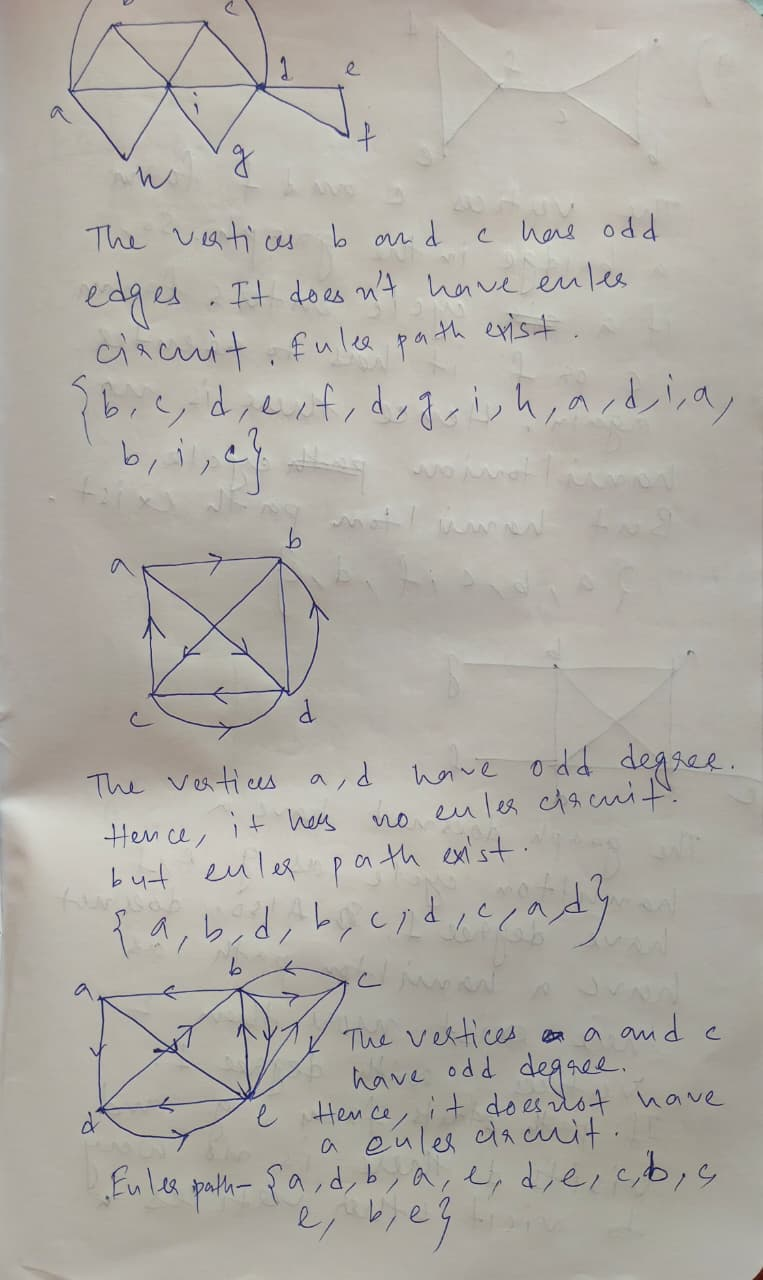 c
a
i
d
e
f
h
g
The vertices b and c has odd
edges. It doesn't have euler
circuit. Euler path exist.
{b, c, d, e, f, d, g, i, h, a, d, i, a,
b, i, c}
a
b
c
d
The vertices a, d have odd degree.
Hence, it has no euler circuit.
but euler path exist.
{a, b, d, b, c, d, c, a, d}
a
b
c
d
e
The vertices a and c
have odd degree.
Hence, it doesnot have
a euler circuit.
Euler path- {a, d, b, a, e, d, e, c, b, c,
e, b, e}